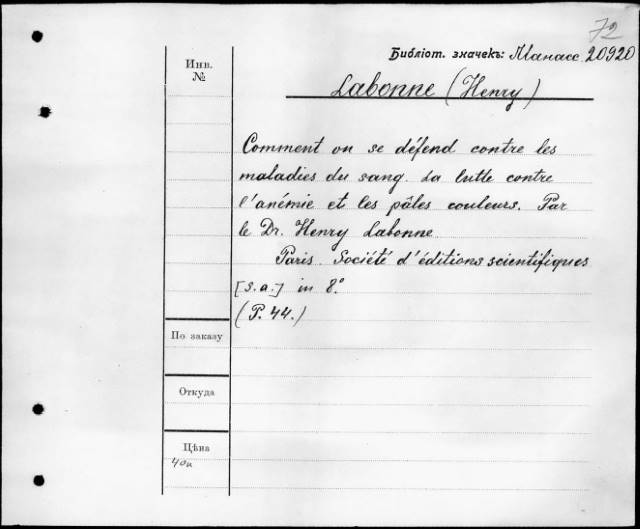 72
Библіот. значекъ: Манасс. 20920
Инв.
№
Labonne (Henry)
Comment on se défend contre les
maladies du sang. La lutte contre
l'anémie et les pâles couleurs. Par
le Dr. Henry Labonne.
Paris. Société d'éditions scientifiques
[s.a.] in 8º.
(P. 44.)
По заказу
Откуда
Цѣна
40к